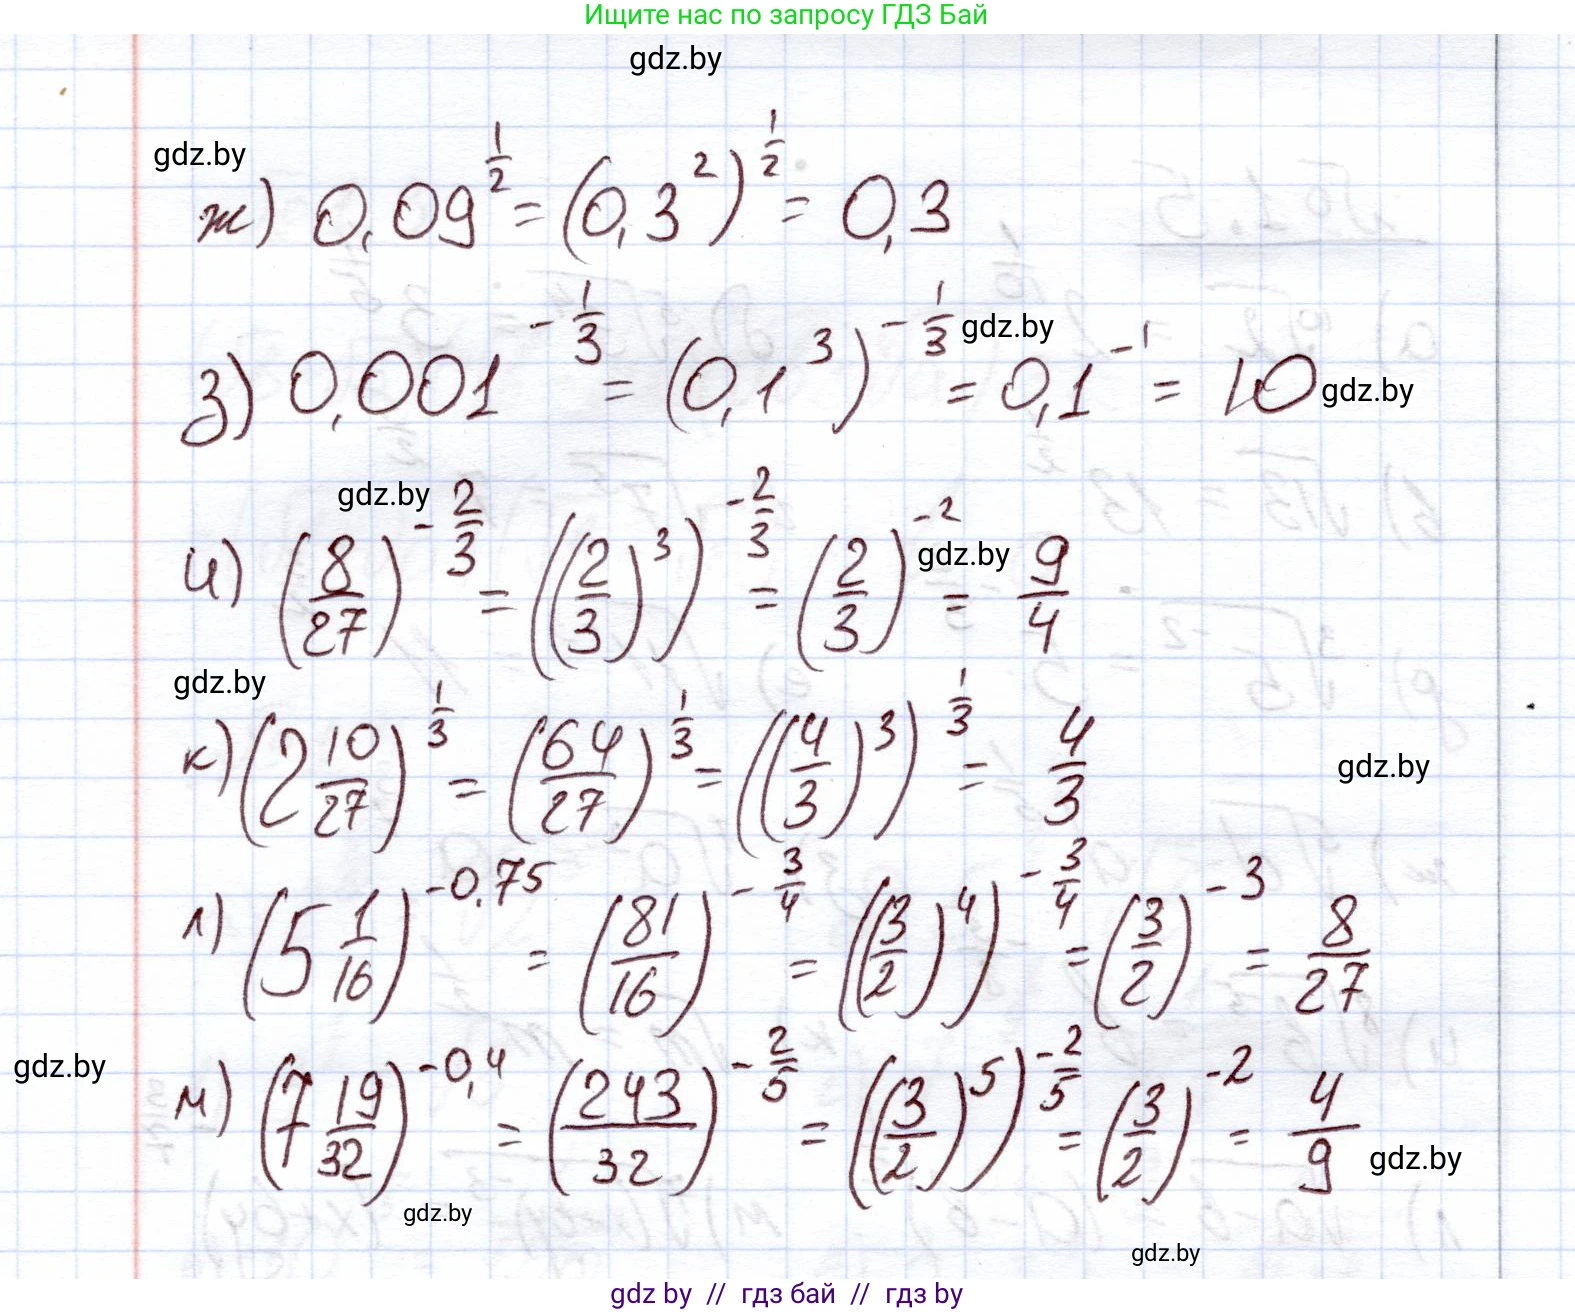 Ищите нас по запросу ГДЗ Бай
gdz.by
gdz.by
ж) 0,09^{\frac{1}{2}} = (0,3^2)^{\frac{1}{2}} = 0,3
з) 0,001^{-\frac{1}{3}} = (0,1^3)^{-\frac{1}{3}} = 0,1^{-1} = 10
gdz.by
gdz.by
gdz.by
и) (\frac{8}{27})^{-\frac{2}{3}} = ((\frac{2}{3})^3)^{-\frac{2}{3}} = (\frac{2}{3})^{-2} = \frac{9}{4}
gdz.by
gdz.by
к) (2\frac{10}{27})^{\frac{1}{3}} = (\frac{64}{27})^{\frac{1}{3}} = ((\frac{4}{3})^3)^{\frac{1}{3}} = \frac{4}{3}
gdz.by
л) (5\frac{1}{16})^{-0,75} = (\frac{81}{16})^{-\frac{3}{4}} = ((\frac{3}{2})^4)^{-\frac{3}{4}} = (\frac{3}{2})^{-3} = \frac{8}{27}
gdz.by
м) (7\frac{19}{32})^{-0,4} = (\frac{243}{32})^{-\frac{2}{5}} = ((\frac{3}{2})^5)^{-\frac{2}{5}} = (\frac{3}{2})^{-2} = \frac{4}{9}
gdz.by
gdz.by
gdz.by
gdz by // гдз бай // гдз by